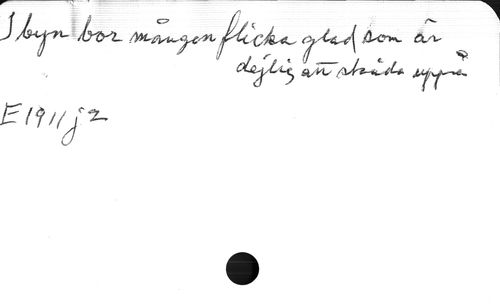 I byn bor mången flicka glad som är
dejlig att skåda uppå
E 1911 j 2